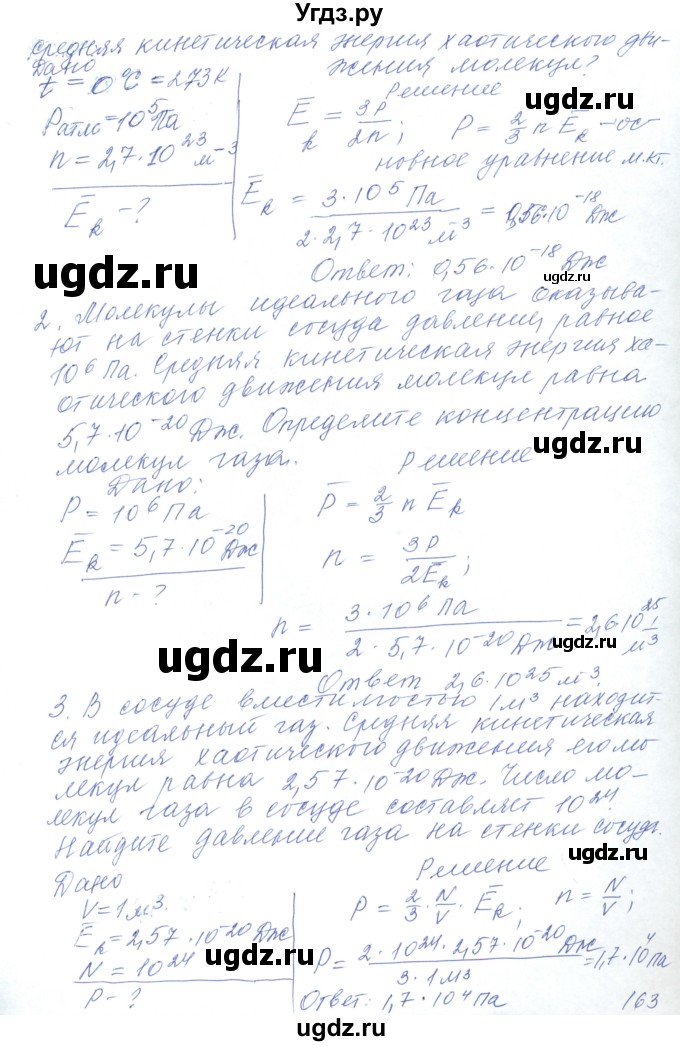 Угдз.ру
средняя кинетическая энергия хаотического дви-
Дано
жения молекул?
t = 0°C = 273К
Решение
Pатм = 10⁵ Па
n = 2,7·10²³ м⁻³
Ēk - ?
Ēk = 3P/2n; P = 2/3 n Ēk - ос-
новное уравнение м.кт.
Ēk = 3·10⁵ Па / 2·2,7·10²³ м³ = 0,56·10⁻¹⁸ Дж
Ответ: 0,56·10⁻¹⁸ Дж
2. Молекулы идеального газа оказыва-
ют на стенки сосуда давление, равное
10⁶ Па. Средняя кинетическая энергия ха-
отического движения молекул равна
5,7·10⁻²⁰ Дж. Определите концентрацию
молекул газа.
Решение
Дано:
P = 10⁶ Па
Ēk = 5,7·10⁻²⁰ Дж
n - ?
P̄ = 2/3 n Ēk
n = 3P/2Ēk;
n = 3·10⁶ Па / 2·5,7·10⁻²⁰ Дж = 2,6·10²⁵ 1/м³
Ответ 2,6·10²⁵ м³.
3. В сосуде вместимостью 1м³ находит-
ся идеальный газ. Средняя кинетическая
энергия хаотического движения его мо-
лекул равна 2,57·10⁻²⁰ Дж. Число мо-
лекул газа в сосуде составляет 10²⁴.
Найдите давление газа на стенки сосуда.
Дано
Решение
V = 1м³.
Ēk = 2,57·10⁻²⁰ Дж
N = 10²⁴
P - ?
P = 2/3 · N/V · Ēk; n = N/V;
P = 2·10²⁴·2,57·10⁻²⁰ Дж / 3·1м³ = 1,7·10⁴ Па
Ответ: 1,7·10⁴ Па
163
ugdz.ru
ugdz.ru
ugdz.ru
ugdz.ru
ugdz.ru
ugdz.ru
ugdz.ru
ugdz.ru
ugdz.ru
ugdz.ru
ugdz.ru